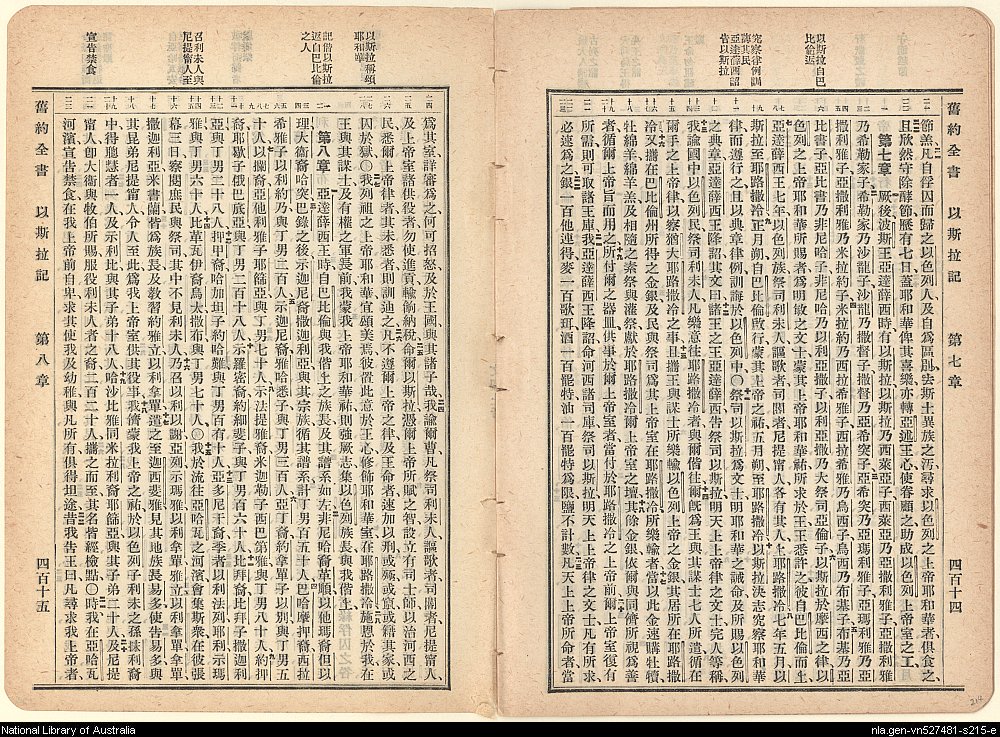 以斯拉自巴
比倫返
究察律例訓
誨其民
亞達薛西詔
告以斯拉
舊約全書 以斯拉記 第七章 四百十四
節羔凡自俘囚而歸之以色列人及自爲區別去斯土異族之汚尋求以色列之上帝耶和華者俱食之
且欣然守除酵節歷有七日蓋耶和華俾其喜樂亦轉亞述王心使眷顧之助成以色列上帝室之工
第七章 厥後波斯王亞達薛西時有以斯拉以斯拉乃西萊亞子西萊亞乃亞撒利雅子亞撒利雅
乃希勒家子希勒家乃沙龍子沙龍乃撒督子撒督乃亞希突子亞希突乃亞瑪利雅子亞瑪利雅乃亞
撒利雅子亞撒利雅乃米拉約子米拉約乃西拉希雅子西拉希雅乃烏西子烏西乃布基子布基乃亞
比書子亞比書乃非尼哈子非尼哈乃以利亞撒子以利亞撒乃大祭司亞倫子以斯拉於摩西之律以
色列之上帝耶和華所賜者爲明敏之文士蒙其上帝耶和華祐所求於王王悉許之彼自巴比倫而上
亞達薛西王七年以色列族祭司利未人謳歌者司閽者尼提甯人各有其人上耶路撒冷七年五月以
斯拉至耶路撒冷正月朔自巴比倫啟行蒙其上帝之祐五月朔至耶路撒冷以斯拉決志究察耶和華
律而遵行之且以典章律例訓誨於以色列中〇祭司以斯拉爲文士明耶和華之誡命及所賜以色列
之典章亞達薛西王降詔其文曰諸王之王亞達薛西告祭司以斯拉明天上上帝律之文士完人等稱
我論國中以色列民祭司利未人凡樂意往耶路撒冷者與爾偕往爾旣爲王與其謀士七人所遣循在
爾手之上帝律以察猶大耶路撒冷之事且攜王與謀士所樂輸以色列上帝之金銀其居所在耶路撒
冷又攜在巴比倫州所得之金銀及民與祭司爲其上帝室在耶路撒冷所樂輸者當以此金速購牡犢
牡綿羊綿羊羔及相隨之素祭與灌祭獻於耶路撒冷爾上帝室之壇其餘金銀依爾與同儕所視爲善
者循爾上帝旨而用之所付爾之器皿供事於爾上帝室者當付於耶路撒冷之上帝前爾上帝室復有
所需則可取諸王庫我亞達薛西王降詔命河西諸司庫吏一百罷以斯拉明天上上帝律之文士凡有所求
必速爲之銀一百他連得麥一百歌珥酒一百罷特油一百罷特爲限鹽不計數凡天上上帝所命者當
以斯拉稱頌
耶和華
記偕以斯拉
返自巴比倫
之人
召利未人與
尼提甯人至
宣告禁食
爲其室詳審爲之何可招怒及於王國與其諸子哉我諭爾曹凡祭司利未人謳歌者司閽者尼提甯人
及上帝室諸供役者勿使進貢輸餉納稅命爾以斯拉憑爾上帝所賦之智設立有司士師以治河西之
民悉爾上帝律者其未悉者則訓迪之凡不遵爾上帝之律及王命者速加以刑或殛或竄或籍其家或
囚於獄〇我列祖之上帝耶和華宜頌美焉彼置此意於王心修飾耶和華室在耶路撒冷施恩於我在
王與其謀士及有權之軍長前我蒙我上帝耶和華祐則強厥志集以色列族長與我偕上
第八章 亞達薛西王時自巴比倫與我偕上之族長及其譜系如左非尼哈裔革順以他瑪裔但以
理大衞裔哈突巴錄之後示迦尼裔撒迦利亞與其宗族循其譜系計丁男一百五十人巴哈摩押裔西拉
希雅子以利約乃與丁男二百人示迦尼裔雅哈悉子與丁男三百人亞丁裔約拿單子以別與丁男五
十人以攔裔亞他利雅子耶篩亞與丁男七十人示法提雅裔米迦勒子西巴第雅與丁男八十人約押
裔耶歇子俄巴底亞與丁男二百十八人示羅密裔約細斐子與丁男百六十人比拜裔比拜子撒迦利
亞與丁男二十八人押甲裔哈加坦子約哈難與丁男百有十人亞多尼干裔季者以利法列耶利示瑪
雅與丁男六十人比革瓦伊裔烏太撒布與丁男七十人〇我於流往亞哈瓦之河濱會集斯衆在彼張
幕三日察閱庶民與祭司其中不見利未人乃召以利以謝亞列示瑪雅以利拿單雅立以利拿單拿單
撒迦利亞米書蘭皆爲族長及敎習約雅立以利拿單遣之至迦西斐雅見其地族長易多使告易多與
其昆弟尼提甯人令人至此爲我上帝室供其役事我儕蒙我上帝之祐於以色列子利未之孫抹利裔
中得聰慧者一人及示利比與其子弟十八人哈沙比雅同米拉利裔耶篩亞與其子弟二十人及尼提
甯人卽大衞與牧伯所賜服役利未人者之裔二百二十人攜之而至其名皆經檢點〇時我在亞哈瓦
河濱宣告禁食在我上帝前自卑求其使我及幼稚與凡所有俱得坦途昔我告王曰凡尋求我上帝者
舊約全書 以斯拉記 第八章 四百十五
National Library of Australia
nla.gen-vn527481-s215-e